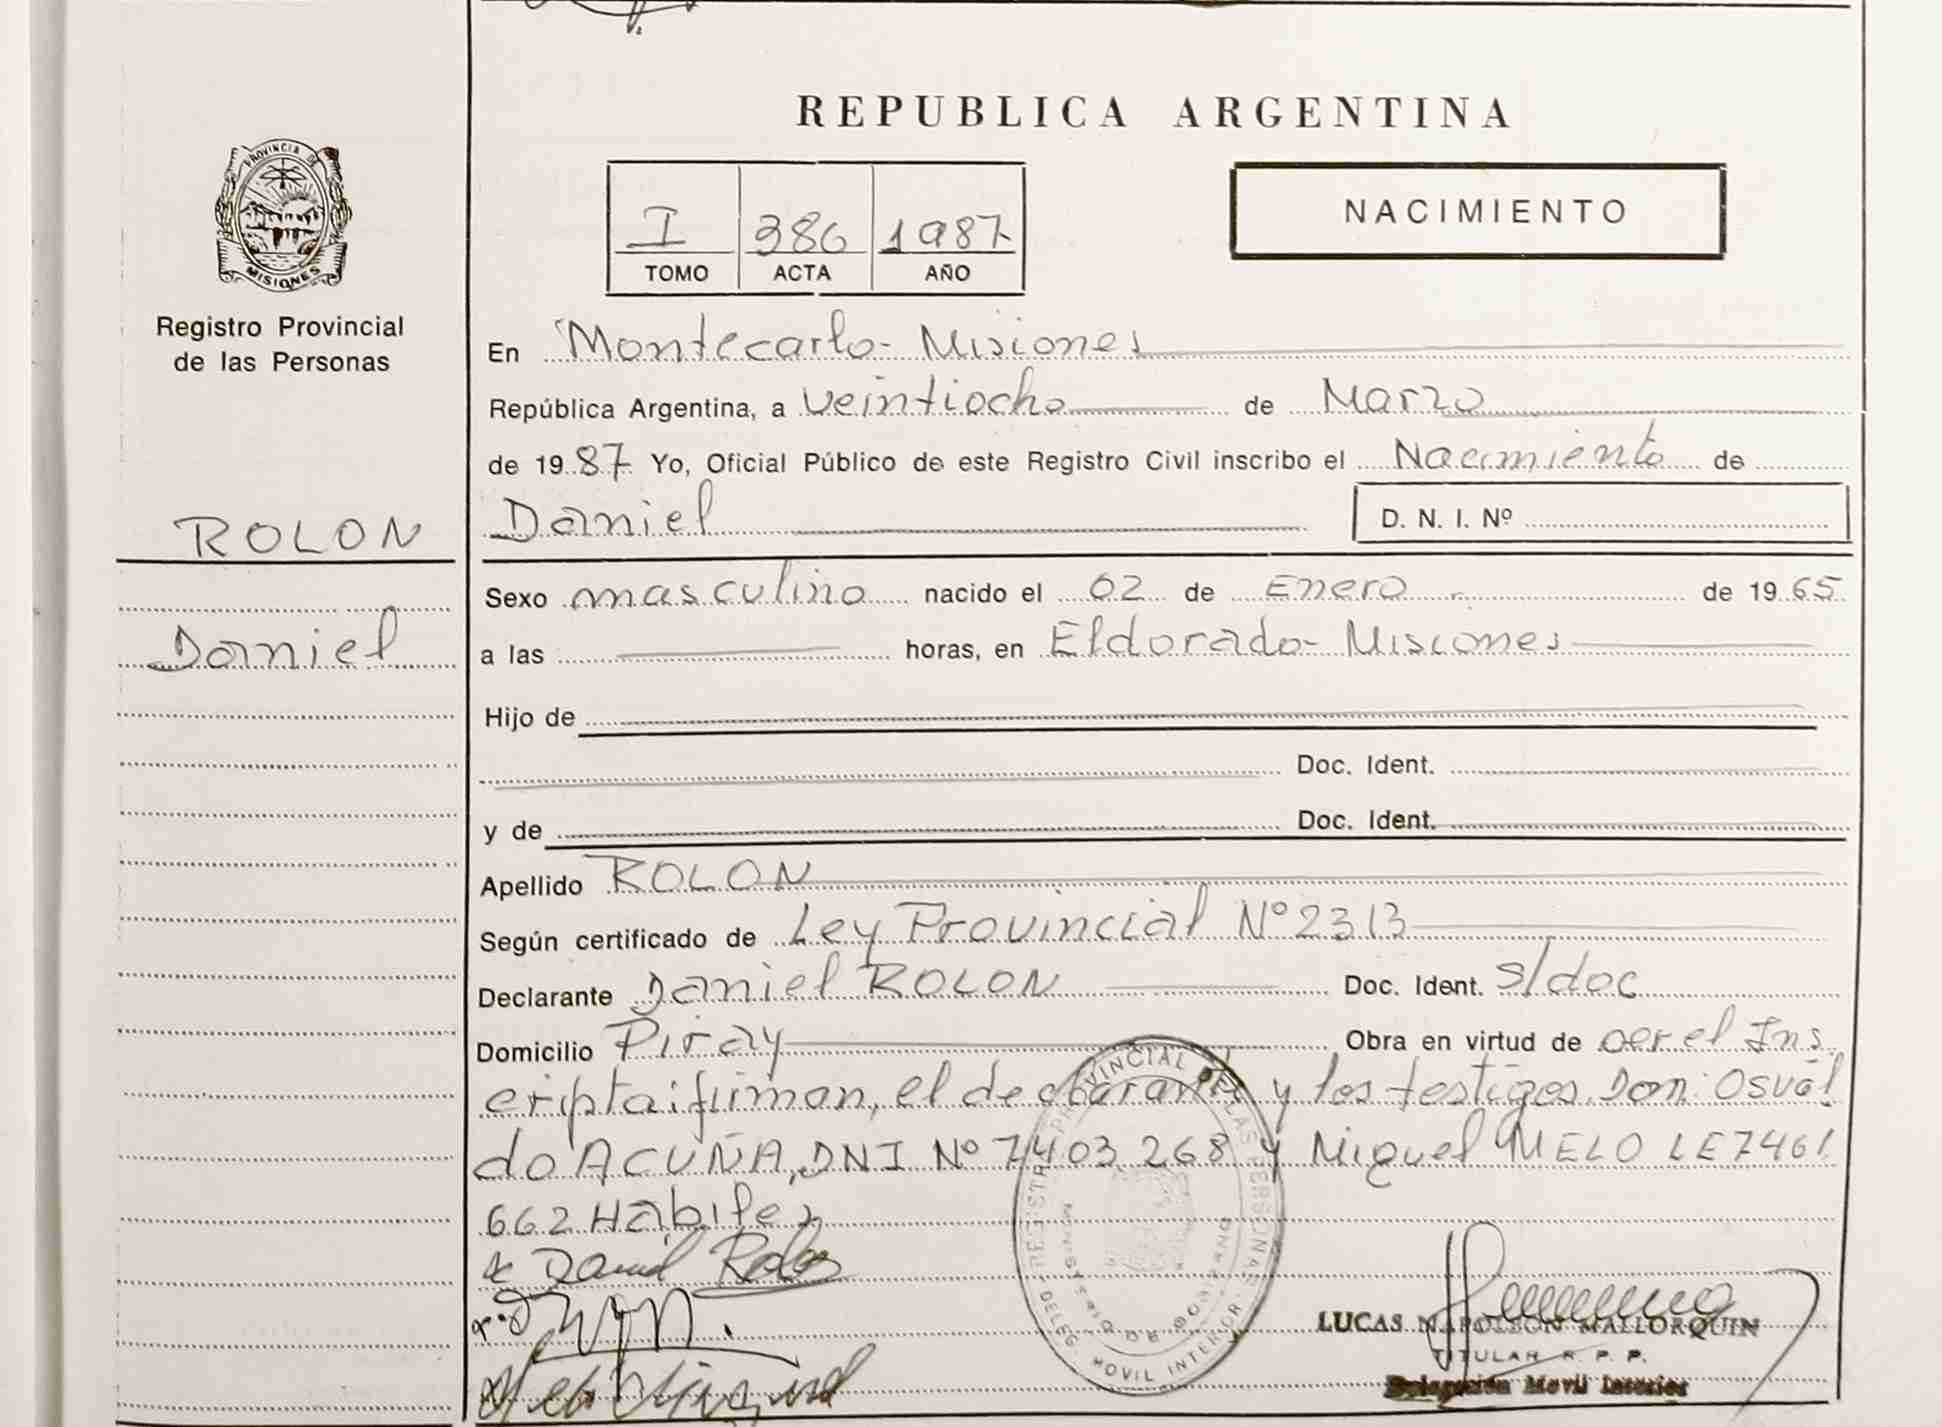 PROVINCIA DE
MISIONES
Registro Provincial
de las Personas
ROLON
Daniel
REPUBLICA ARGENTINA
I 386 1987
TOMO ACTA AÑO
NACIMIENTO
En Montecarlo - Misiones
República Argentina, a veintiocho de Marzo
de 1987 Yo, Oficial Público de este Registro Civil inscribo el Nacimiento de
Daniel D. N. I. Nº
Sexo masculino nacido el 02 de Enero de 1965
a las horas, en Eldorado - Misiones
Hijo de
Doc. Ident.
y de Doc. Ident.
Apellido ROLON
Según certificado de Ley Provincial Nº 2313
Declarante Daniel ROLON Doc. Ident. s/doc
Domicilio Piray Obra en virtud de ser el Ins
cripto; firman, el declarante y los testigos Don: Osval
do ACUÑA, DNI Nº 7403 268 y Miguel MELO LE 7461
662 Habiles
x Daniel Rolon
REGISTRO PROVINCIAL DE LAS PERSONAS
MINISTERIO DE GOBIERNO
DELEG. MOVIL INTERIOR
LUCAS NAPOLEON MALLORQUIN
TITULAR R. P. P.
Delegación Movil Interior